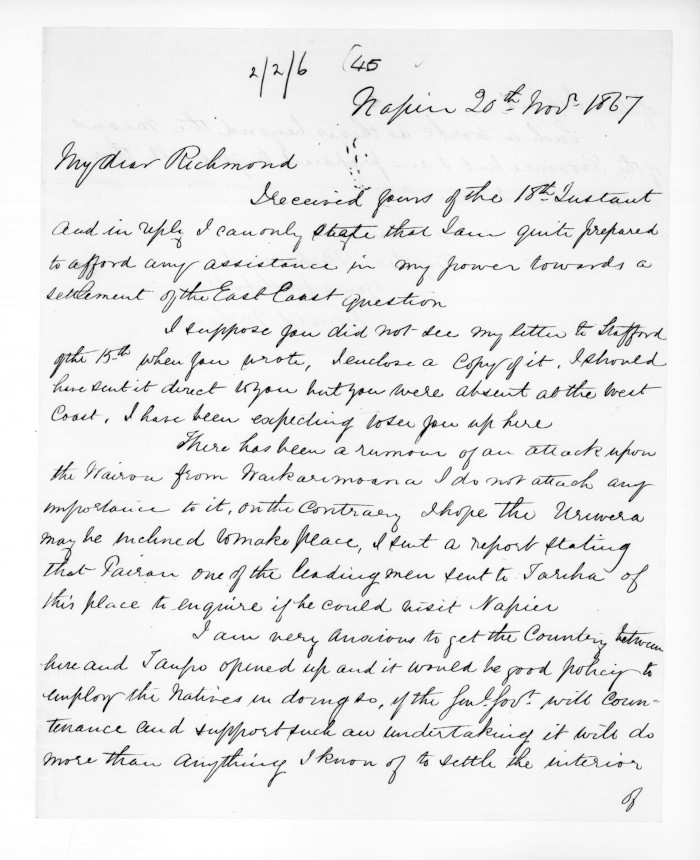 2/2/6 (45
Napier 20th Novr. 1867
My dear Richmond
I received yours of the 18th Instant
and in reply I can only state that I am quite prepared
to afford any assistance in my power towards a
settlement of the East Coast question
I suppose you did not see my letter to Stafford
of the 15th when you wrote, I enclose a copy of it. I should
have sent it direct to you but you were absent at the West
Coast. I have been expecting to see you up here
There has been a rumour of an attack upon
the Wairoa from Waikarimoana I do not attach any
importance to it, on the contrary I hope the Uriwera
may be inclined to make peace, I sent a report stating
that Pairau one of the leading men sent to Tareha of
this place to enquire if he could visit Napier
I am very anxious to get the Country between
here and Taupo opened up and it would be good policy to
employ the Natives in doing so, if the Genl. Govt. will coun-
tenance and support such an undertaking it will do
more than anything I know of to settle the interior
of